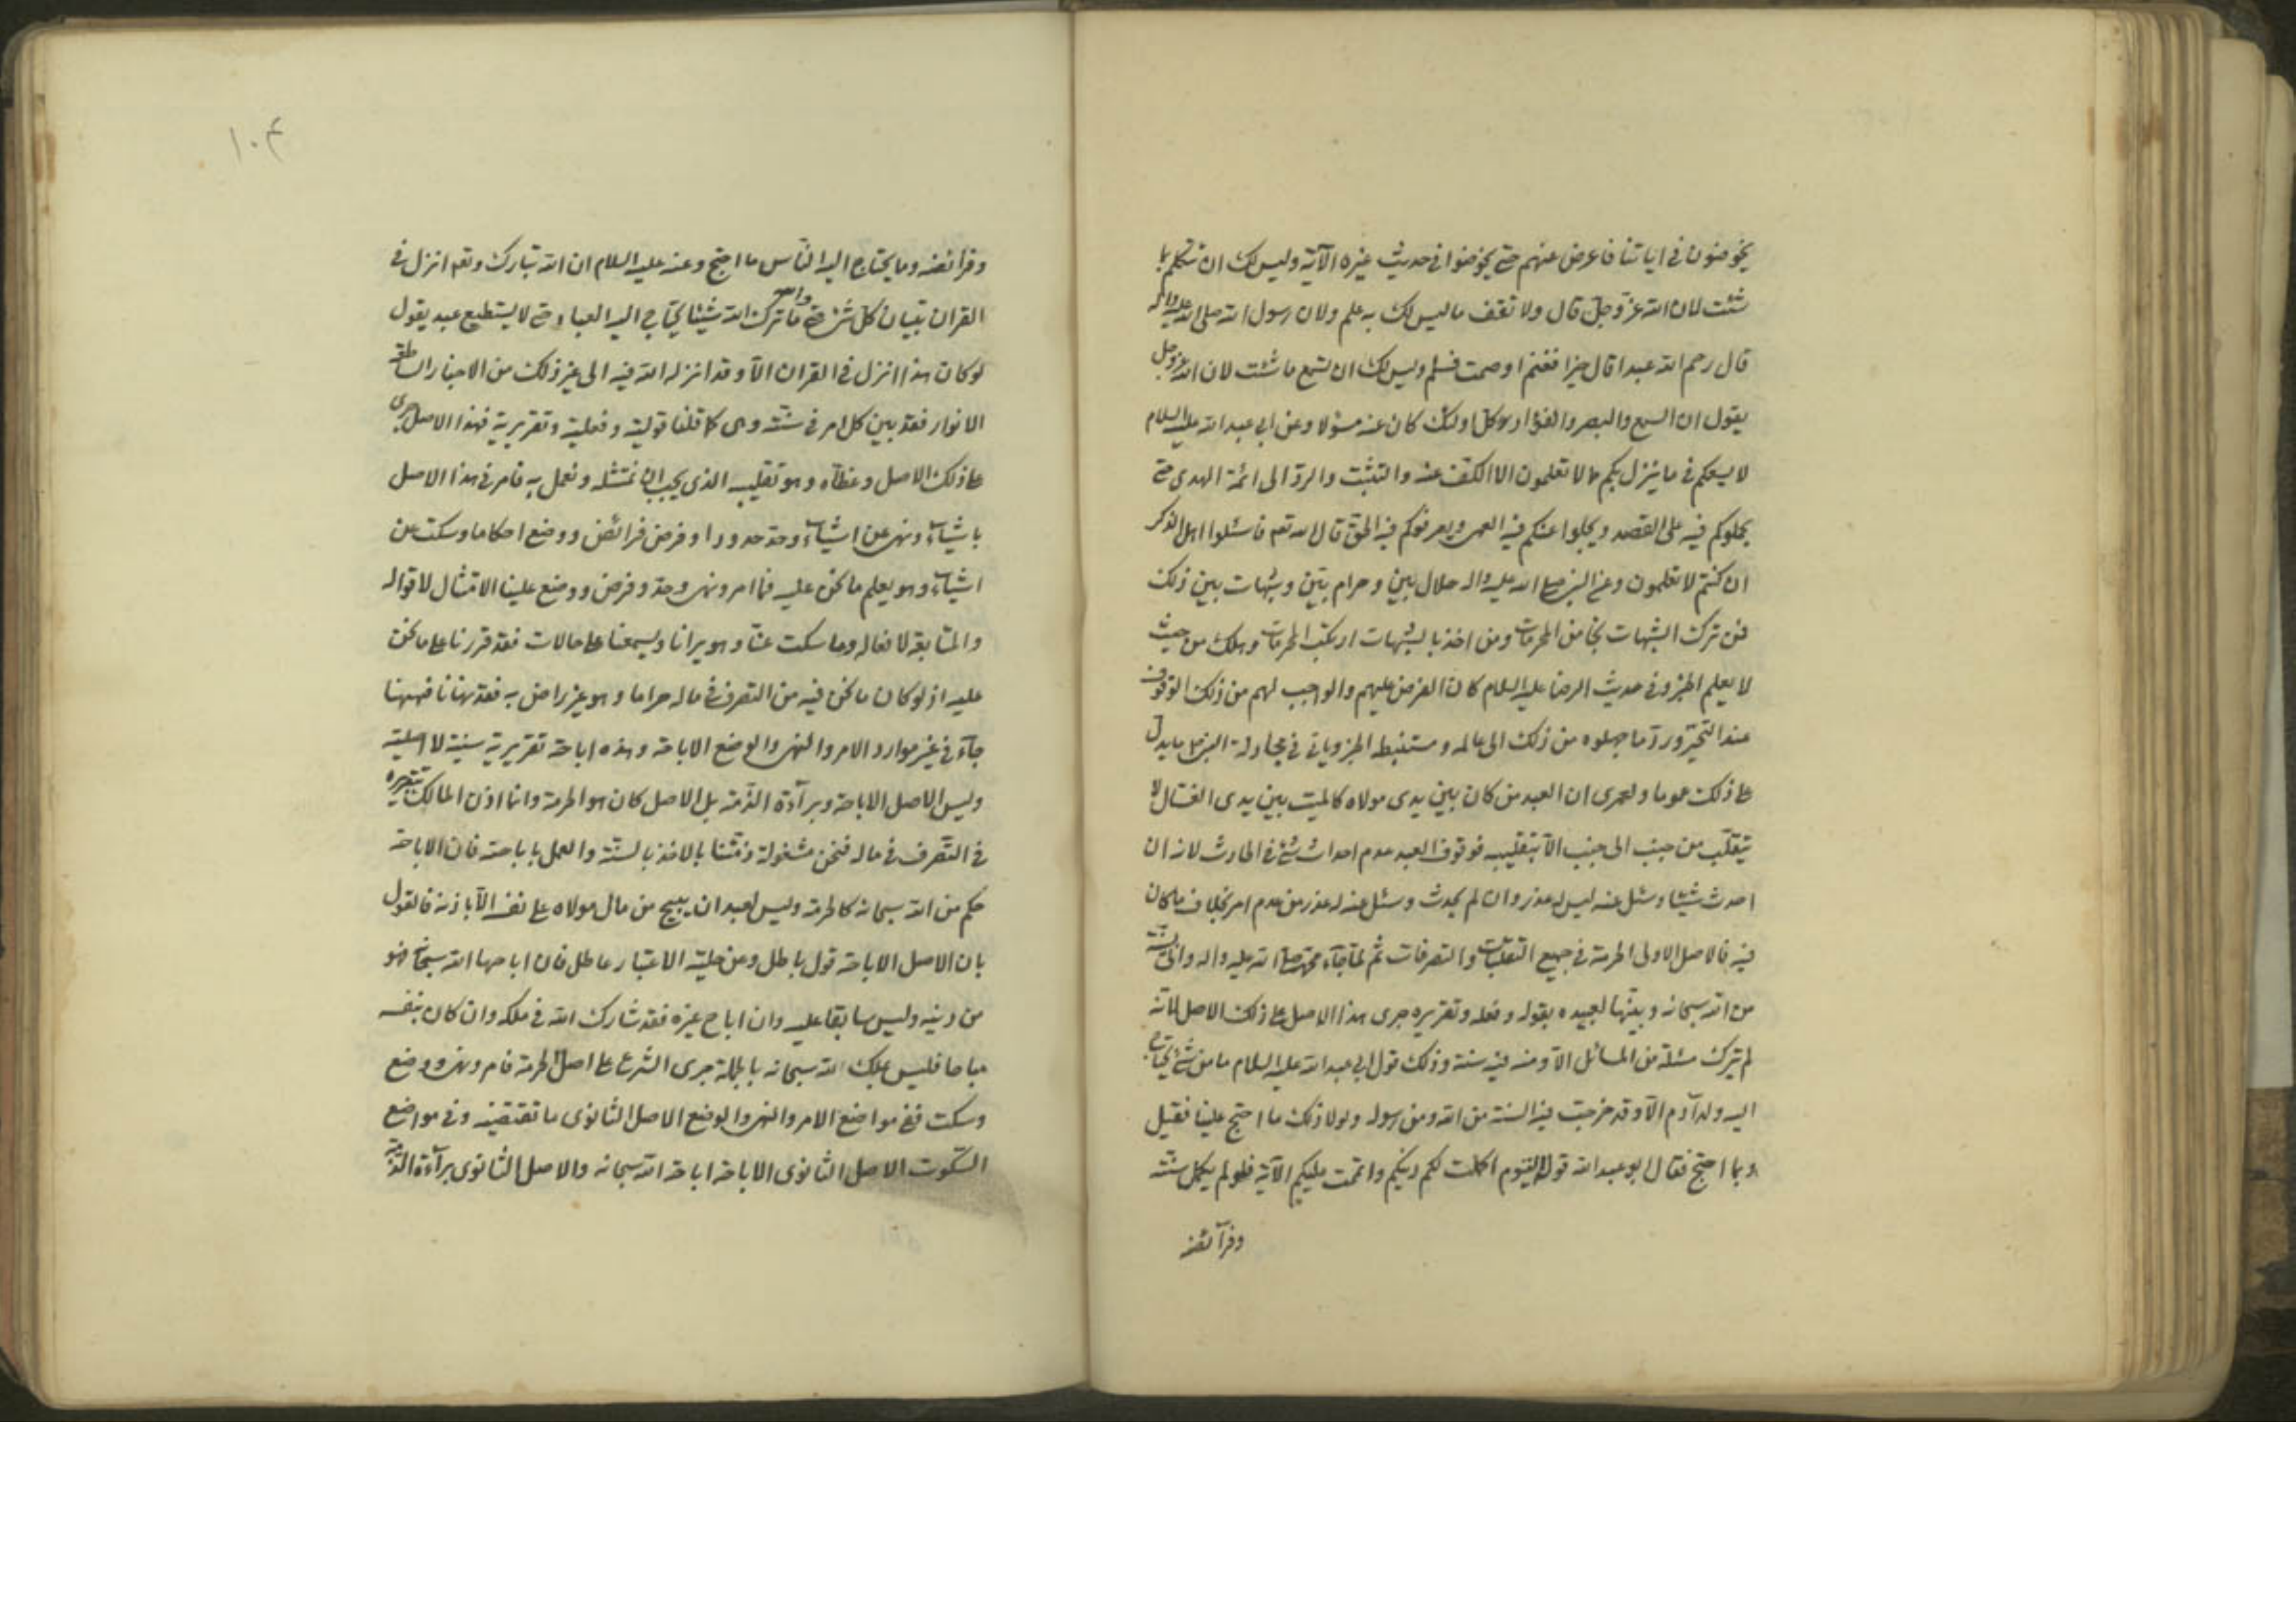 يخوضون في اياتنا فاعرض عنهم حتى يخوضوا في حديث غيره الآية وليس لك ان تتكلم بما
شئت لان الله عز وجل قال ولا تقف ما ليس لك به علم ولان رسول الله صلى الله عليه واله
قال رحم الله عبدا قال خيرا فغنم او صمت فسلم وليس لك ان تسمع ما شئت لان الله عز وجل
يقول ان السمع والبصر والفؤاد كل اولئك كان عنه مسئولا وعن ابي عبد الله عليه السلام
لا يسعكم في ما ينزل بكم مما لا تعلمون الا الكف عنه والتثبت والرد الى ائمة الهدى حتى
يحملوكم فيه على القصد ويجلوا عنكم فيه العمى ويعرفوكم فيه الحق قال الله تعم فاسئلوا اهل الذكر
ان كنتم لا تعلمون وعن النبي صلى الله عليه واله حلال بين وحرام بين وشبهات بين ذلك
فمن ترك الشبهات نجا من المحرمات ومن اخذ بالشبهات ارتكب المحرمات وهلك من حيث
لا يعلم الخبر وفي حديث الرضا عليه السلام كان الفرض عليهم والواجب لهم من ذلك الوقوف
عند التحير ورد ما جهلوه من ذلك الى عالمه ومستنبطه الخبر وياتي في مجادلة ما يدل
على ذلك عموما ولعمرى ان العبد من كان بين يدى مولاه كالميت بين يدى الغسال لا
يتقلب من جنب الى جنب الا بتقليبه فوقوف العبد عدم احداث شئ في الحادث لانه ان
احدث شيئا وسئل عنه ليس له عذر وان لم يحدث وسئل عنه له عذر من عدم امر بخلاف ما كان
فيه فالاصل الاولى الحرمة في جميع التقلبات والتصرفات ثم لما جآء محمد صلى الله عليه واله واتى بسنة
من الله سبحانه وبينها لعبيده بقوله وفعله وتقريره جرى هذا الاصل على ذلك الاصل لانه
لم يترك مسئلة من المسائل الا وضع فيه سنة وذلك قول ابي عبد الله عليه السلام ما من شئ يحتاج
اليه ولد آدم الا وقد خرجت فيه السنة من الله ومن رسوله ولولا ذلك ما احتج علينا فقيل
وبما احتج فقال ابو عبد الله قوله اليوم اكملت لكم دينكم واتممت عليكم الآية فلو لم يكمل سنته
وفرآئضه
۱۰۴
وفرائضه وما يحتاج اليه الناس ما احتج وعنه عليه السلام ان الله تبارك وتعم انزل في
القران تبيان كل شئ حتى والله ما ترك الله شيئا يحتاج اليه العباد حتى لا يستطيع عبد يقول
لو كان هذا انزل في القران الا وقد انزله الله فيه الى غير ذلك من الاخبار الساطعة
الانوار فقد بين كل امر في سنته وهى كما قلنا قولية وفعلية وتقريرية فهذا الاصل جرى
على ذلك الاصل وغطاه وهو تقليبه الذي يجب ان نمتثله ونعمل به فامر في هذا الاصل
باشيآء ونهى عن اشيآء وحد حدودا وفرض فرائض ووضع احكاما وسكت عن
اشيآء وهو يعلم ما نحن عليه فما امر ونهى وحد وفرض ووضع علينا الامتثال لاقواله
والمتابعة لافعاله وما سكت عنا وهو يرانا ويسمعنا على حالات فقد قررنا على ما نحن
عليه اذ لو كان ما نحن فيه من التصرف في ماله حراما وهو غير راض به فقد نهانا فههنا
جآء في غير موارد الامر والنهى والوضع الاباحة وهذه اباحة تقريرية سنية لا اصلية
وليس الاصل الاباحة وبرآءة الذمة بل الاصل كان هو الحرمة وانما اذن المالك بتقريره
في التصرف في ماله فنحن مشغولة ذمتنا بالاخذ بالسنة والعمل باباحته فان الاباحة
حكم من الله سبحانه كالحرمة وليس لعبد ان يبيح من مال مولاه على نفسه الا باذنه فالقول
بان الاصل الاباحة قول باطل ومن حلية الاعتبار عاطل فان اباحها الله سبحانه فهو
من دينه وليس سابقا عليه وان اباح غيره فقد شارك الله في ملكه وان كان بنفسه
مباحا فليس بملك الله سبحانه بالجملة جرى الشرع على اصل الحرمة فامر ونهى ووضع
وسكت ففي مواضع الامر والنهى والوضع الاصل الثانوى ما تقتضيه وفي مواضع
السكوت الاصل الثانوى الاباحة اباحة الله سبحانه والاصل الثانوى برآءة الذمة